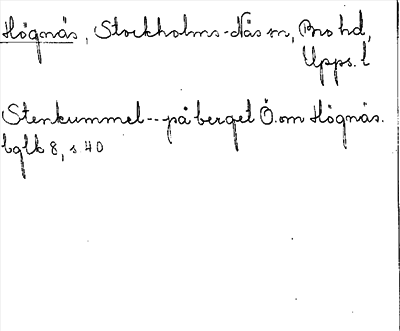 Högnäs, Stockholms-Näs sn, Bro hd,
Upps. l
Stenkummel -- på berget Ö. om Högnäs.
bglb 8, s 40